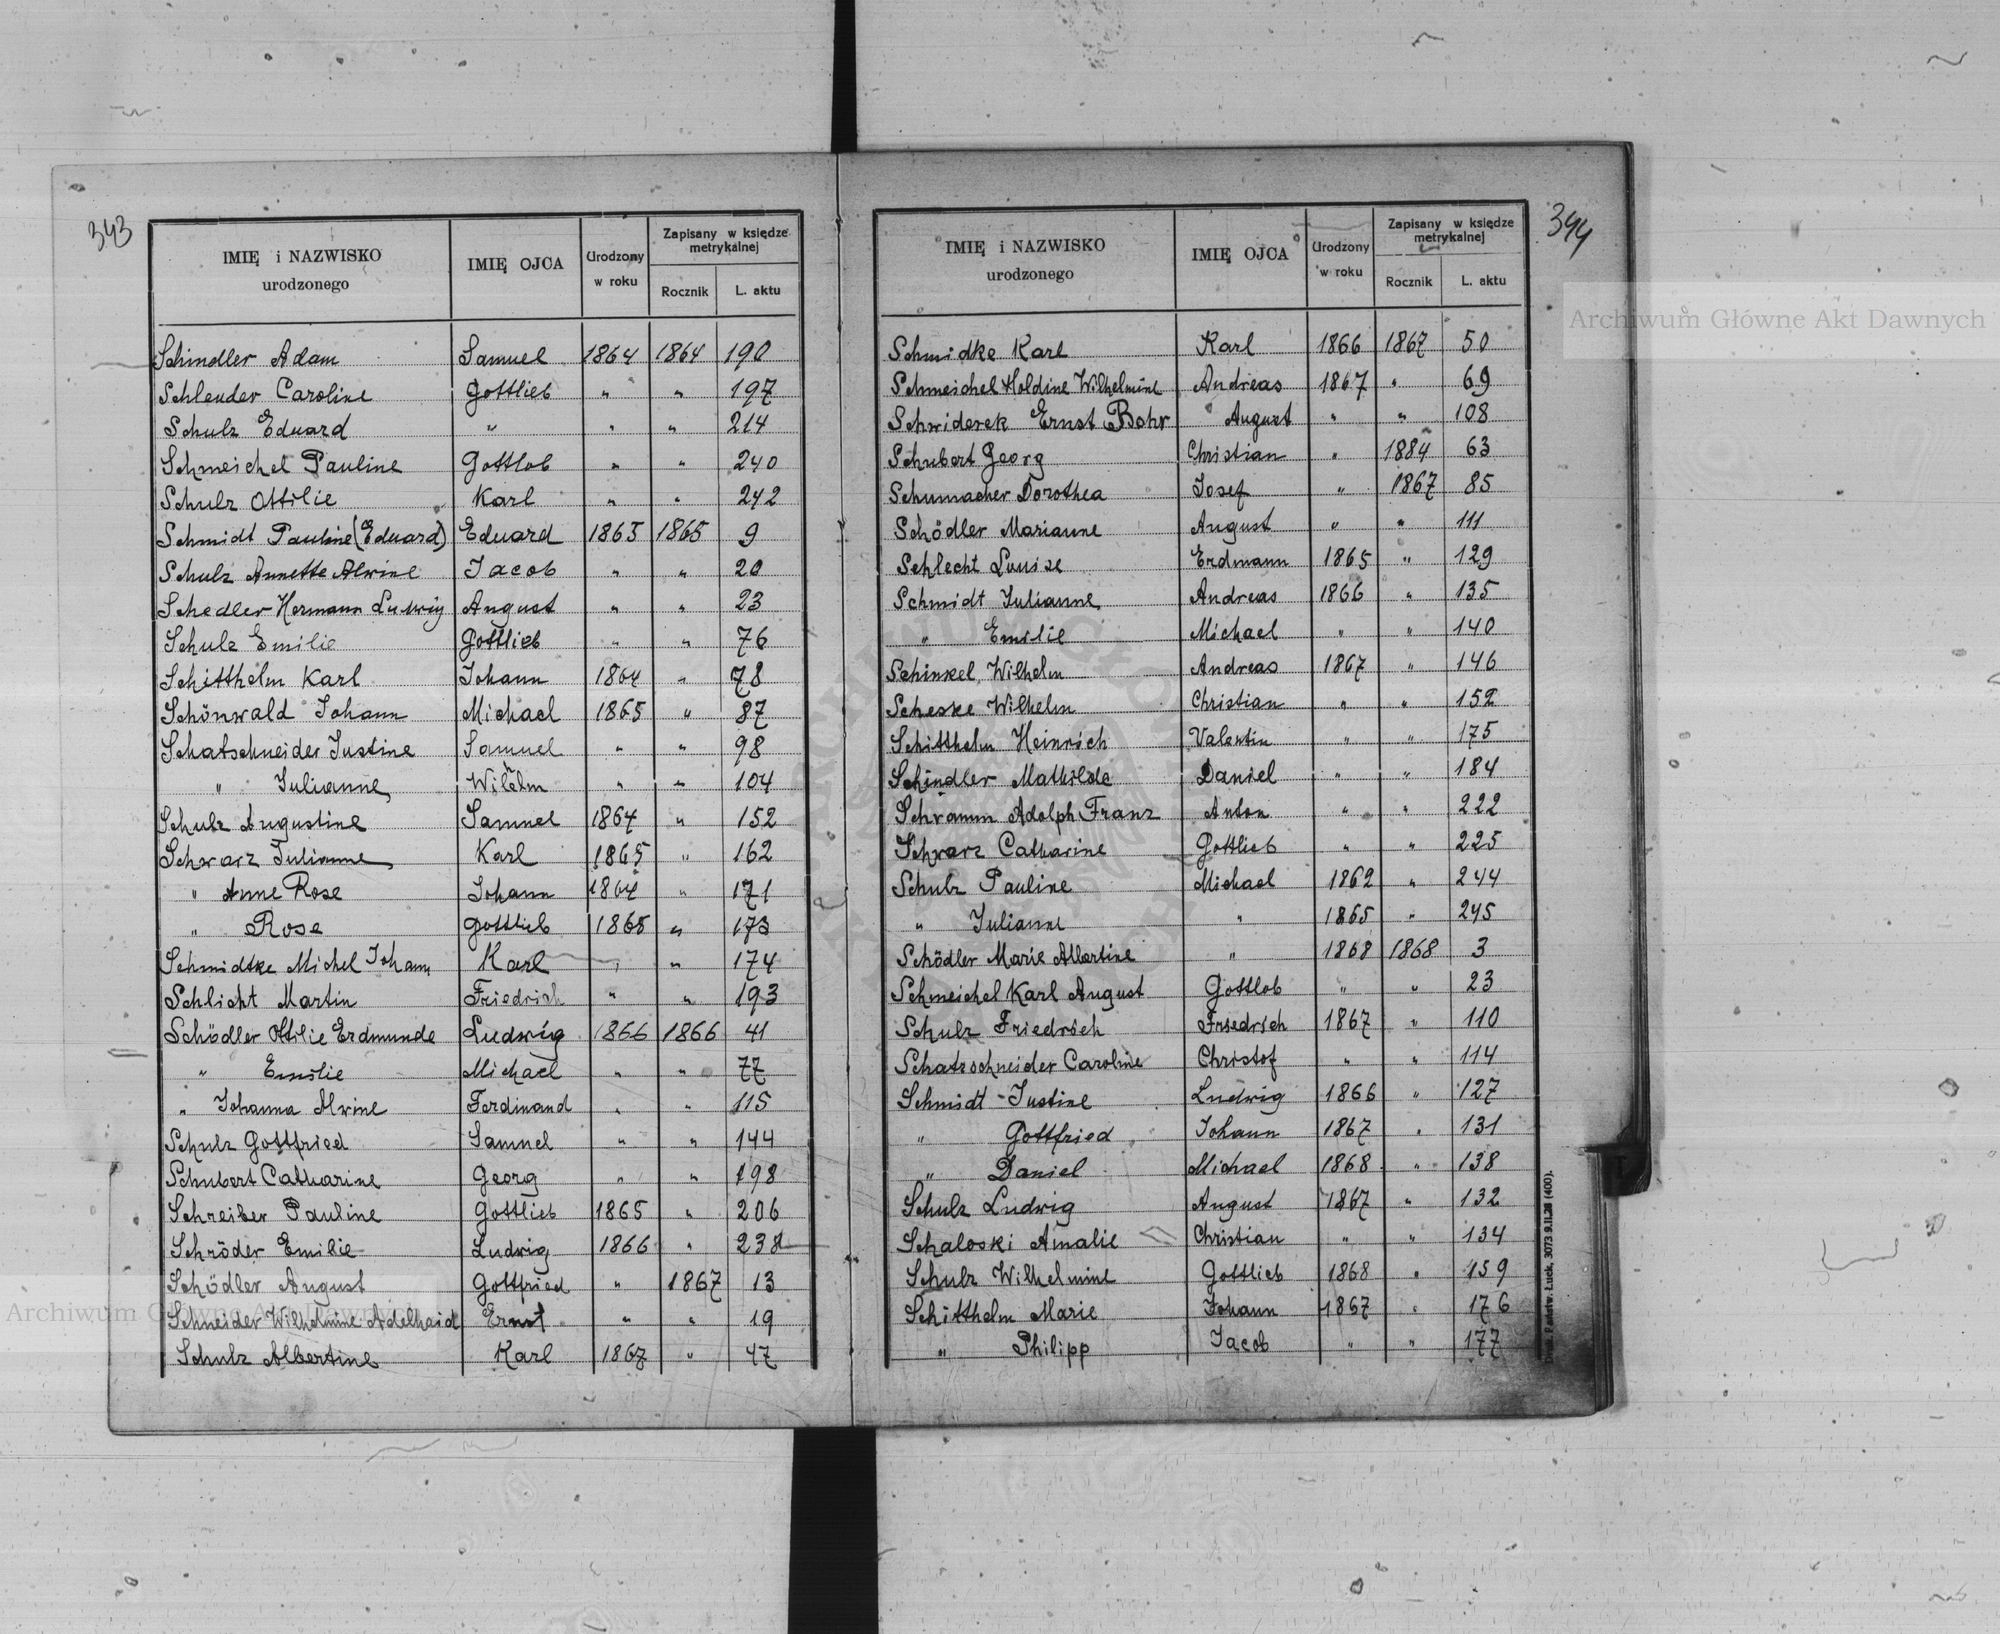 343
IMIĘ i NAZWISKO urodzonego | IMIĘ OJCA | Urodzony w roku | Zapisany w księdze metrykalnej | Rocznik | L. aktu
Schindler Adam | Samuel | 1864 | 1864 | 190
Schleuder Caroline | Gottlieb | " | " | 197
Schulz Eduard | " | " | " | 214
Schmeichel Pauline | Gottlob | " | " | 240
Schulz Ottilie | Karl | " | " | 242
Schmidt Pauline (Eduard) | Eduard | 1865 | 1865 | 9
Schulz Annette Alwine | Jacob | " | " | 20
Schedler Hermann Ludwig | August | " | " | 23
Schulz Emilie | Gottlieb | " | " | 76
Schitthelm Karl | Johann | 1864 | " | 78
Schönwald Johann | Michael | 1865 | " | 87
Schatschneider Justine | Samuel | " | " | 98
" Julianne | Wilhelm | " | " | 104
Schulz Augustine | Samuel | 1864 | " | 152
Schwarz Julianne | Karl | 1865 | " | 162
" Anne Rose | Johann | 1864 | " | 171
" Rose | Gottlieb | 1865 | " | 173
Schmidtke Michel Johann | Karl | " | " | 174
Schlicht Martin | Friedrich | " | " | 193
Schödler Ottilie Erdmunde | Ludwig | 1866 | 1866 | 41
" Emilie | Michael | " | " | 77
" Johanna Alwine | Ferdinand | " | " | 115
Schulz Gottfried | Samuel | " | " | 144
Schubert Catharine | Georg | " | " | 198
Schreiber Pauline | Gottlieb | 1865 | " | 206
Schröder Emilie | Ludwig | 1866 | " | 238
Schödler August | Gottfried | " | 1867 | 13
Schneider Wilhelmine Adelhaid | Ernst | " | " | 19
Schulz Albertine | Karl | 1867 | " | 47
344
IMIĘ i NAZWISKO urodzonego | IMIĘ OJCA | Urodzony w roku | Zapisany w księdze metrykalnej | Rocznik | L. aktu
Schmidke Karl | Karl | 1866 | 1867 | 50
Schmeichel Holdine Wilhelmine | Andreas | 1867 | " | 69
Schwiderek Ernst Bohr | August | " | " | 108
Schubert Georg | Christian | " | 1884 | 63
Schumacher Dorothea | Josef | " | 1867 | 85
Schödler Marianne | August | " | " | 111
Schlecht Louise | Erdmann | 1865 | " | 129
Schmidt Julianne | Andreas | 1866 | " | 135
" Emilie | Michael | " | " | 140
Schinkel Wilhelm | Andreas | 1867 | " | 146
Scheske Wilhelm | Christian | " | " | 152
Schitthelm Heinrich | Valentin | " | " | 175
Schindler Mathilde | Daniel | " | " | 184
Schramm Adolph Franz | Anton | " | " | 222
Schwarz Catharine | Gottlieb | " | " | 225
Schulz Pauline | Michael | 1862 | " | 244
" Julianne | " | 1865 | " | 245
Schödler Marie Albertine | " | 1868 | 1868 | 3
Schmeichel Karl August | Gottlob | " | " | 23
Schulz Friedrich | Friedrich | 1867 | " | 110
Schatzschneider Caroline | Christof | " | " | 114
Schmidt - Justine | Ludwig | 1866 | " | 127
" Gottfried | Johann | 1867 | " | 131
" Daniel | Michael | 1868 | " | 138
Schulz Ludwig | August | 1867 | " | 132
Schaloski Amalie | Christian | " | " | 134
Schulz Wilhelmine | Gottlieb | 1868 | " | 159
Schitthelm Marie | Johann | 1867 | " | 176
" Philipp | Jacob | " | " | 177
Druk. Państw. Łuck. 3073 9.II.28 (400).
Archiwum Główne Akt Dawnych
Archiwum Główne Akt Dawnych